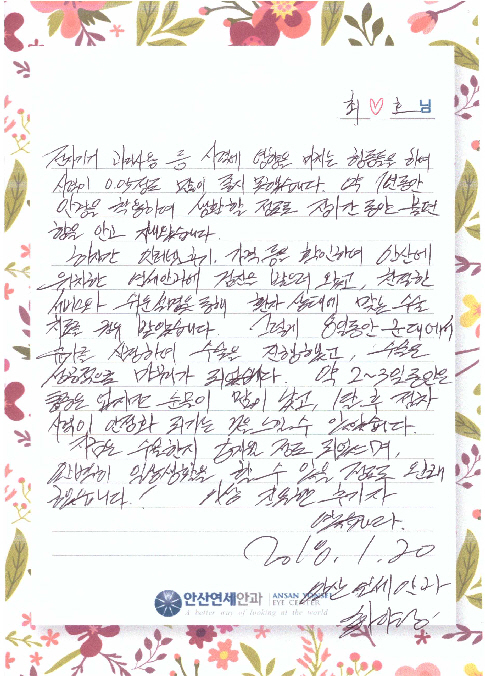 최 ♡ 호 님
전자기기 과다사용 등 시력에 영향을 미치는 행동들을 하여
시력이 0.1정도로 많이 좋지 못했습니다. 약 1년동안
안경을 착용하여 생활할 정도로 장기간동안 불편
함을 안고 지내왔습니다.
하지만 인터넷 후기, 가격 등을 확인하며 안산에
위치한 연세안과에 검진을 받으러 오고, 친절한
서비스와 쉬운 설명을 통해 환자 상태에 맞는 수술
치료를 권유 받았습니다. 그렇게 8일동안 군대에서
휴가를 신청하여 수술을 진행했고, 수술은
성공적으로 마무리가 되었습니다. 약 2~3일동안은
통증은 없지만 눈물이 많이 났고, 1달 후 점차
시력이 안정화 되가는 것을 느낄 수 있었습니다.
지금은 수술한지 정도 되었으며,
완벽히 일상생활을 할 수 있을 정도로 회복
했습니다! 이상 후기자
였습니다.
2018. 1. 20
안산 연세안과
화이팅!
안산연세안과 ANSAN YONSEI EYE CENTER
A better way of looking at the world